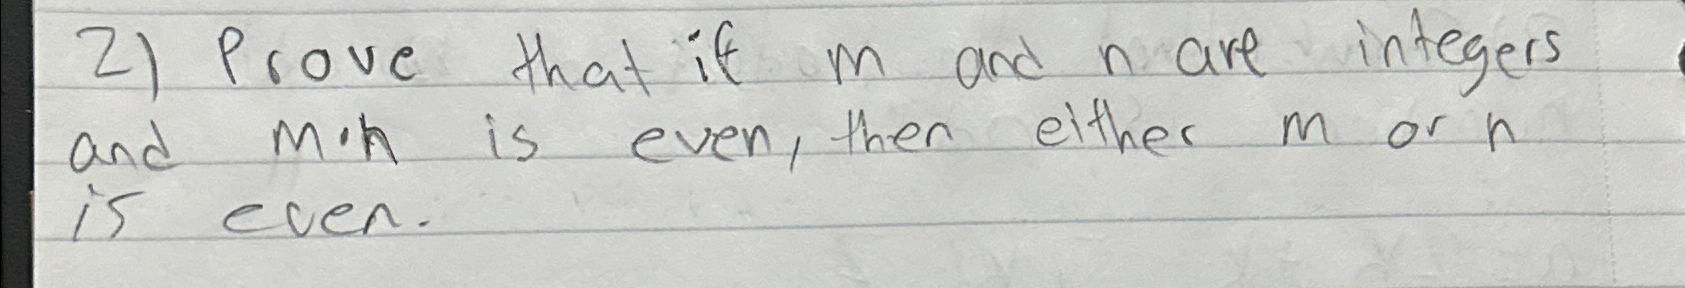 2) Prove that if m and n are integers
and m·n is even, then either m or n
is even.